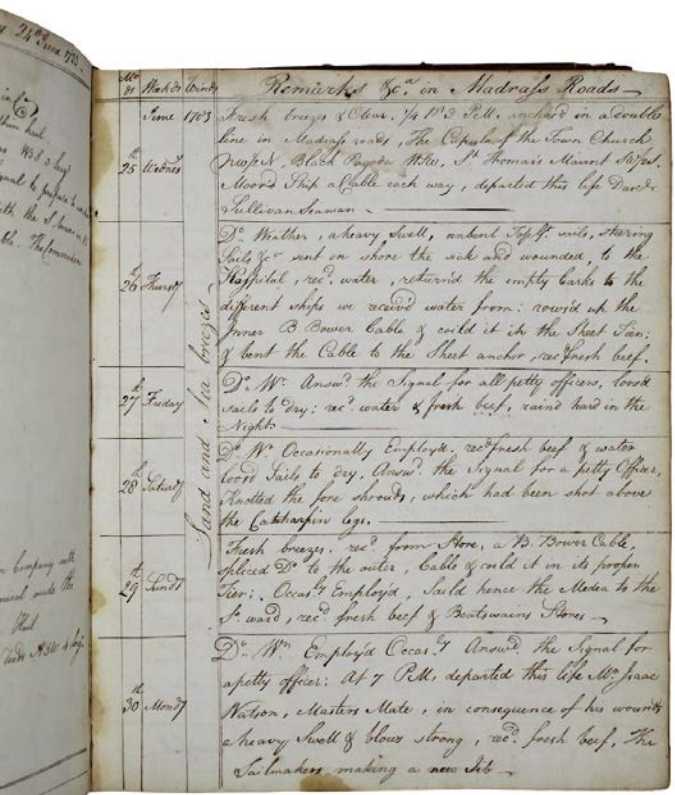 24th June 1783
Mo 81 Week ds Winds Remarks &ca. in Madrass Roads
June 1783 Fresh brezes & Clear. 3/4 Pt 3 P.M. anchord in a double
line in Madrass roads, The Cupula of the Town Church
25th Wednes NW/2N, Black Pagoda WSW, St. Thomas's Maunt
Moor'd Ship a Cable each way, departed this life
Sullivan Seaman.
Do. Weather, a heavy Swell, unbent Topgt. sails, steering
Sails &ca sent on shore the sick and wounded, to the
26th Thursdy Hosspital, recd. water, return'd the empty Casks to the
different ships we receiv'd water from: rows'd up the
Inner B Bower Cable & coild it in the Sheet Tier:
& bent the Cable to the Sheet anchor, recd fresh beef.
Land and Sea brezes
27th Friday Do. Wr. Answd. the Signal for all petty officers, loosd
sails to dry: recd. water & fresh beef, raind hard in the
Night
Do. Wr. Occasionally Employd. recd fresh beef & water
28th Saturdy loosd Sails to dry. Answd. the Signal for a petty Officer,
Knotted the fore shrouds, which had been shot above
the Catcharpin legs.
Fresh breezes. recd. from Store, a B. Bower Cable,
29th Sundy spliced Do. to the outer, Cable & coild it in its proper
Tier: Occasly Employ'd, Saild hence the Medea to the
So. ward, recd. fresh beef & Boatswains Stores
Do. Wr. Employ'd Occasly Answd. the Signal for
a petty officer: At 7 P.M. departed this life Mr. Isaac
30th Mondy Watson, Masters Mate, in consequence of his wounds
a heavy Swell & blows strong, recd. fresh beef, The
Sailmakers making a new Jib